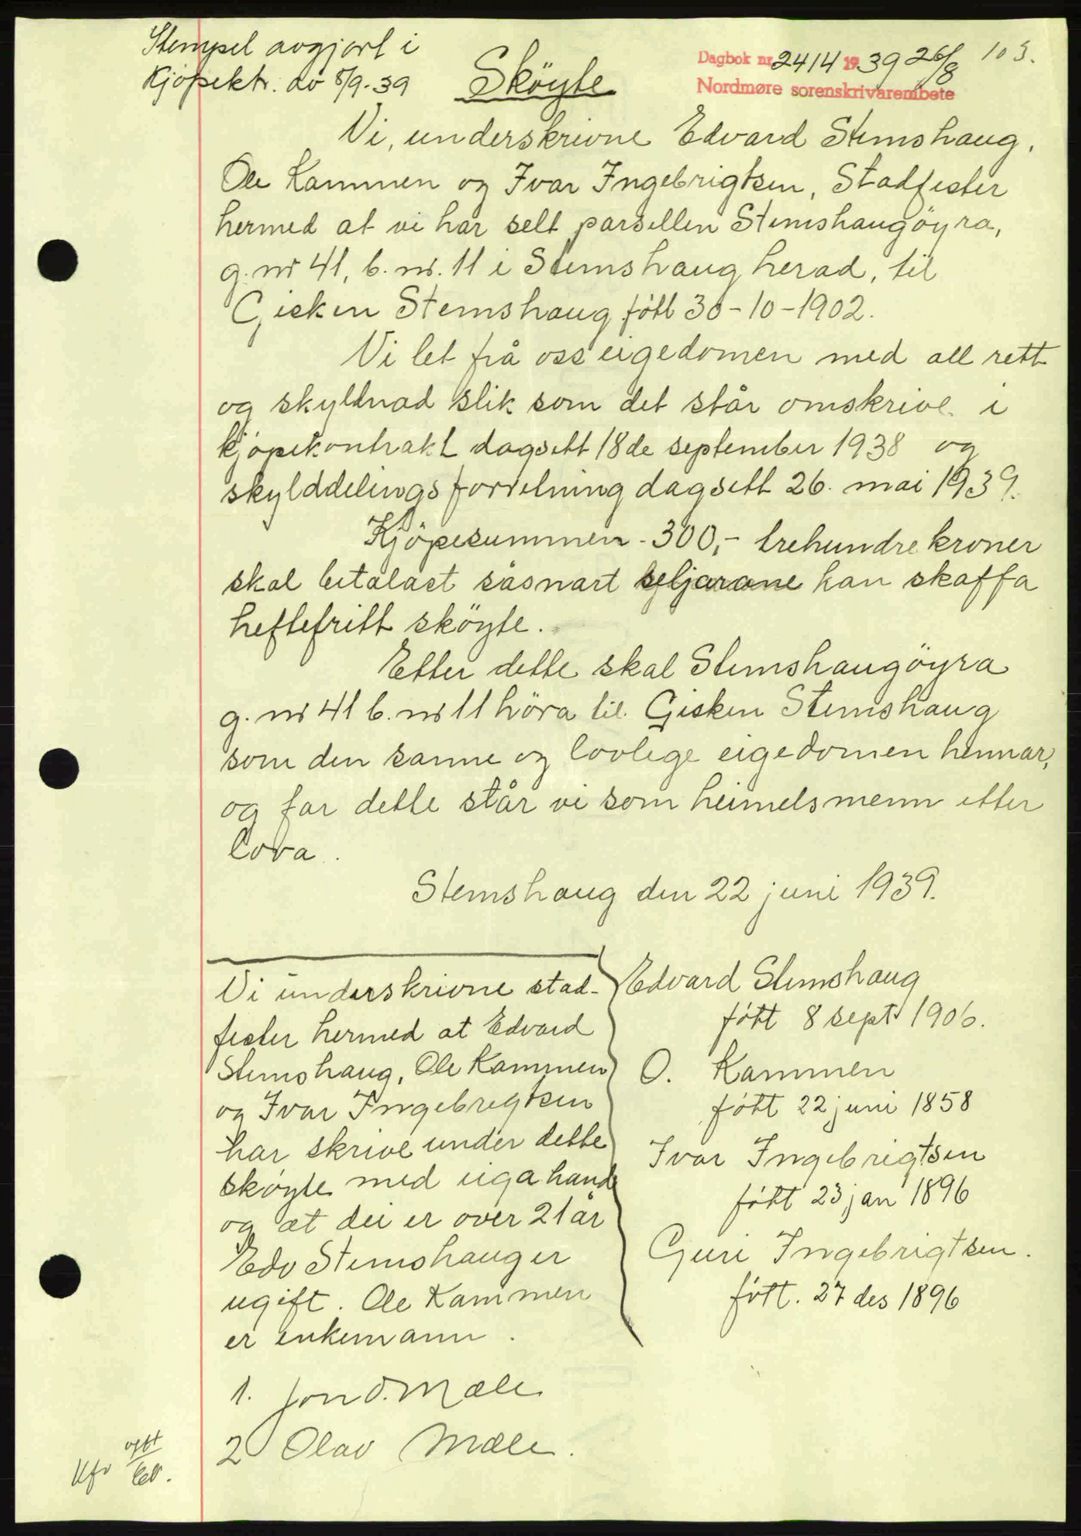 Stempel avgjort i
Kjöpektr. av 5/9-39
Sköyte
Dagbok nr. 2414 1939 26/8
103.
Nordmøre sorenskrivarembete
Vi, underskrivne Edvard Stemshaug,
Ole Kammen og Ivar Ingebrigtsen, Stadfester
hermed at vi har selt parsellen Stemshaugöyra,
g. nr 41, b. nr. 11 i Stemshaug herad, til
Gisken Stemshaug fött 30-10-1902.
Vi let frå oss eigedomen med all rett
og skyldnad slik som det står omskrive i
kjöpekontrakt dagsett 18de september 1938 og
skylddelingsforretning dagsett 26. mai 1939.
Kjöpesummen - 300,- trehundre kroner
skal betalast såsnart seljarane kan skaffa
heftefritt sköyte.
Etter dette skal Stemshaugöyra
g. nr 41 b. nr 11 höra til Gisken Stemshaug
som den sanne og lovlege eigedomen hennar,
og for dette står vi som heimelsmenn etter
lova.
Stemshaug den 22 juni 1939.
Vi underskrivne stad-
fester hermed at Edvard
Stemshaug, Ole Kammen
og Ivar Ingebrigtsen
har skrive under dette
sköyte med eiga hand
og at dei er over 21 år
Edv Stemshaug er
ugift. Ole Kammen
er enkemann.
1. Jon O. Mæle
2 Olav Mæle.
Edvard Stemshaug
fött 8 sept 1906.
O. Kammen
fött 22 juni 1858
Ivar Ingebrigtsen
fött 23 jan 1896
Guri Ingebrigtsen.
fött. 27 des 1896